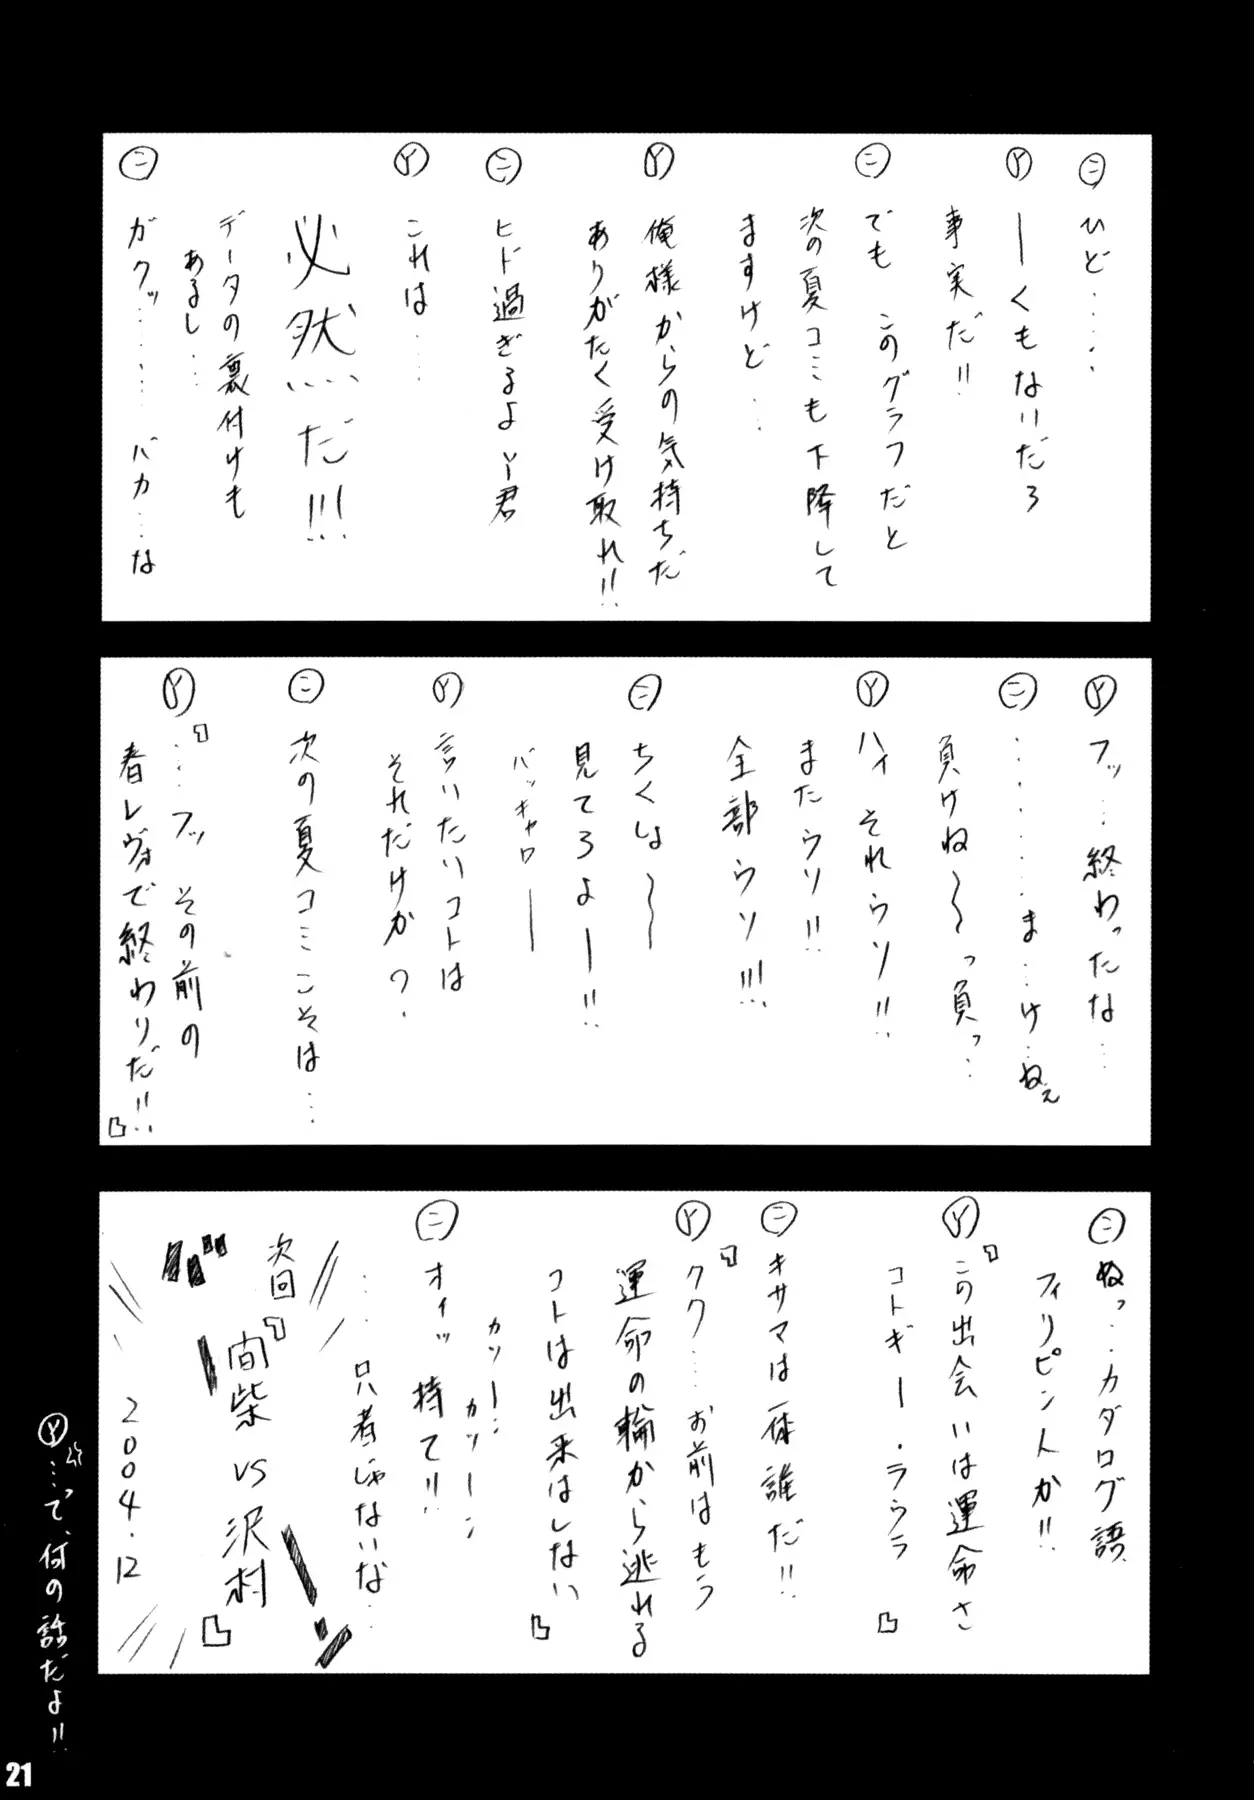 ㊁ ひど……
Ⓨ ーくもないだろ
事実だ!!
㊁ でも このグラフだと
次の夏コミも下降して
ますけど…
Ⓨ 俺様からの気持ちだ
ありがたく受け取れ!!
㊁ ヒド過ぎるよY君
Ⓨ これは……
必然だ!!!
データの裏付けも
あるし…
㊁ ガクッ……… バカ…な
Ⓨ フッ…終わったな…
㊁ ………ま…け…ねぇ
負けね〜〜っ負っ…
Ⓨ ハイ それウソ!!
またウソ!!
全部ウソ!!!
㊁ ちくしょ〜〜
見てろよー!!
バッキャロー
Ⓨ 言いたいコトは
それだけか?
㊁ 次の夏コミこそは…
Ⓨ『……フッ その前の
春レヴォで終わりだ!!』
㊁ ぬっ…カタログ語
フィリピン人か!!
Ⓨ『この出会いは運命さ
コトギー・ラウラ』
㊁ キサマは一体誰だ!!
Ⓨ『クク……お前はもう
運命の輪から逃れる
コトは出来はしない』
カツーン カツーン
㊁ オイッ 待て!!
……只者じゃないな…
次回
『間柴 VS 沢村』
2004.12
Ⓨ …って、何の話だよ!!
21